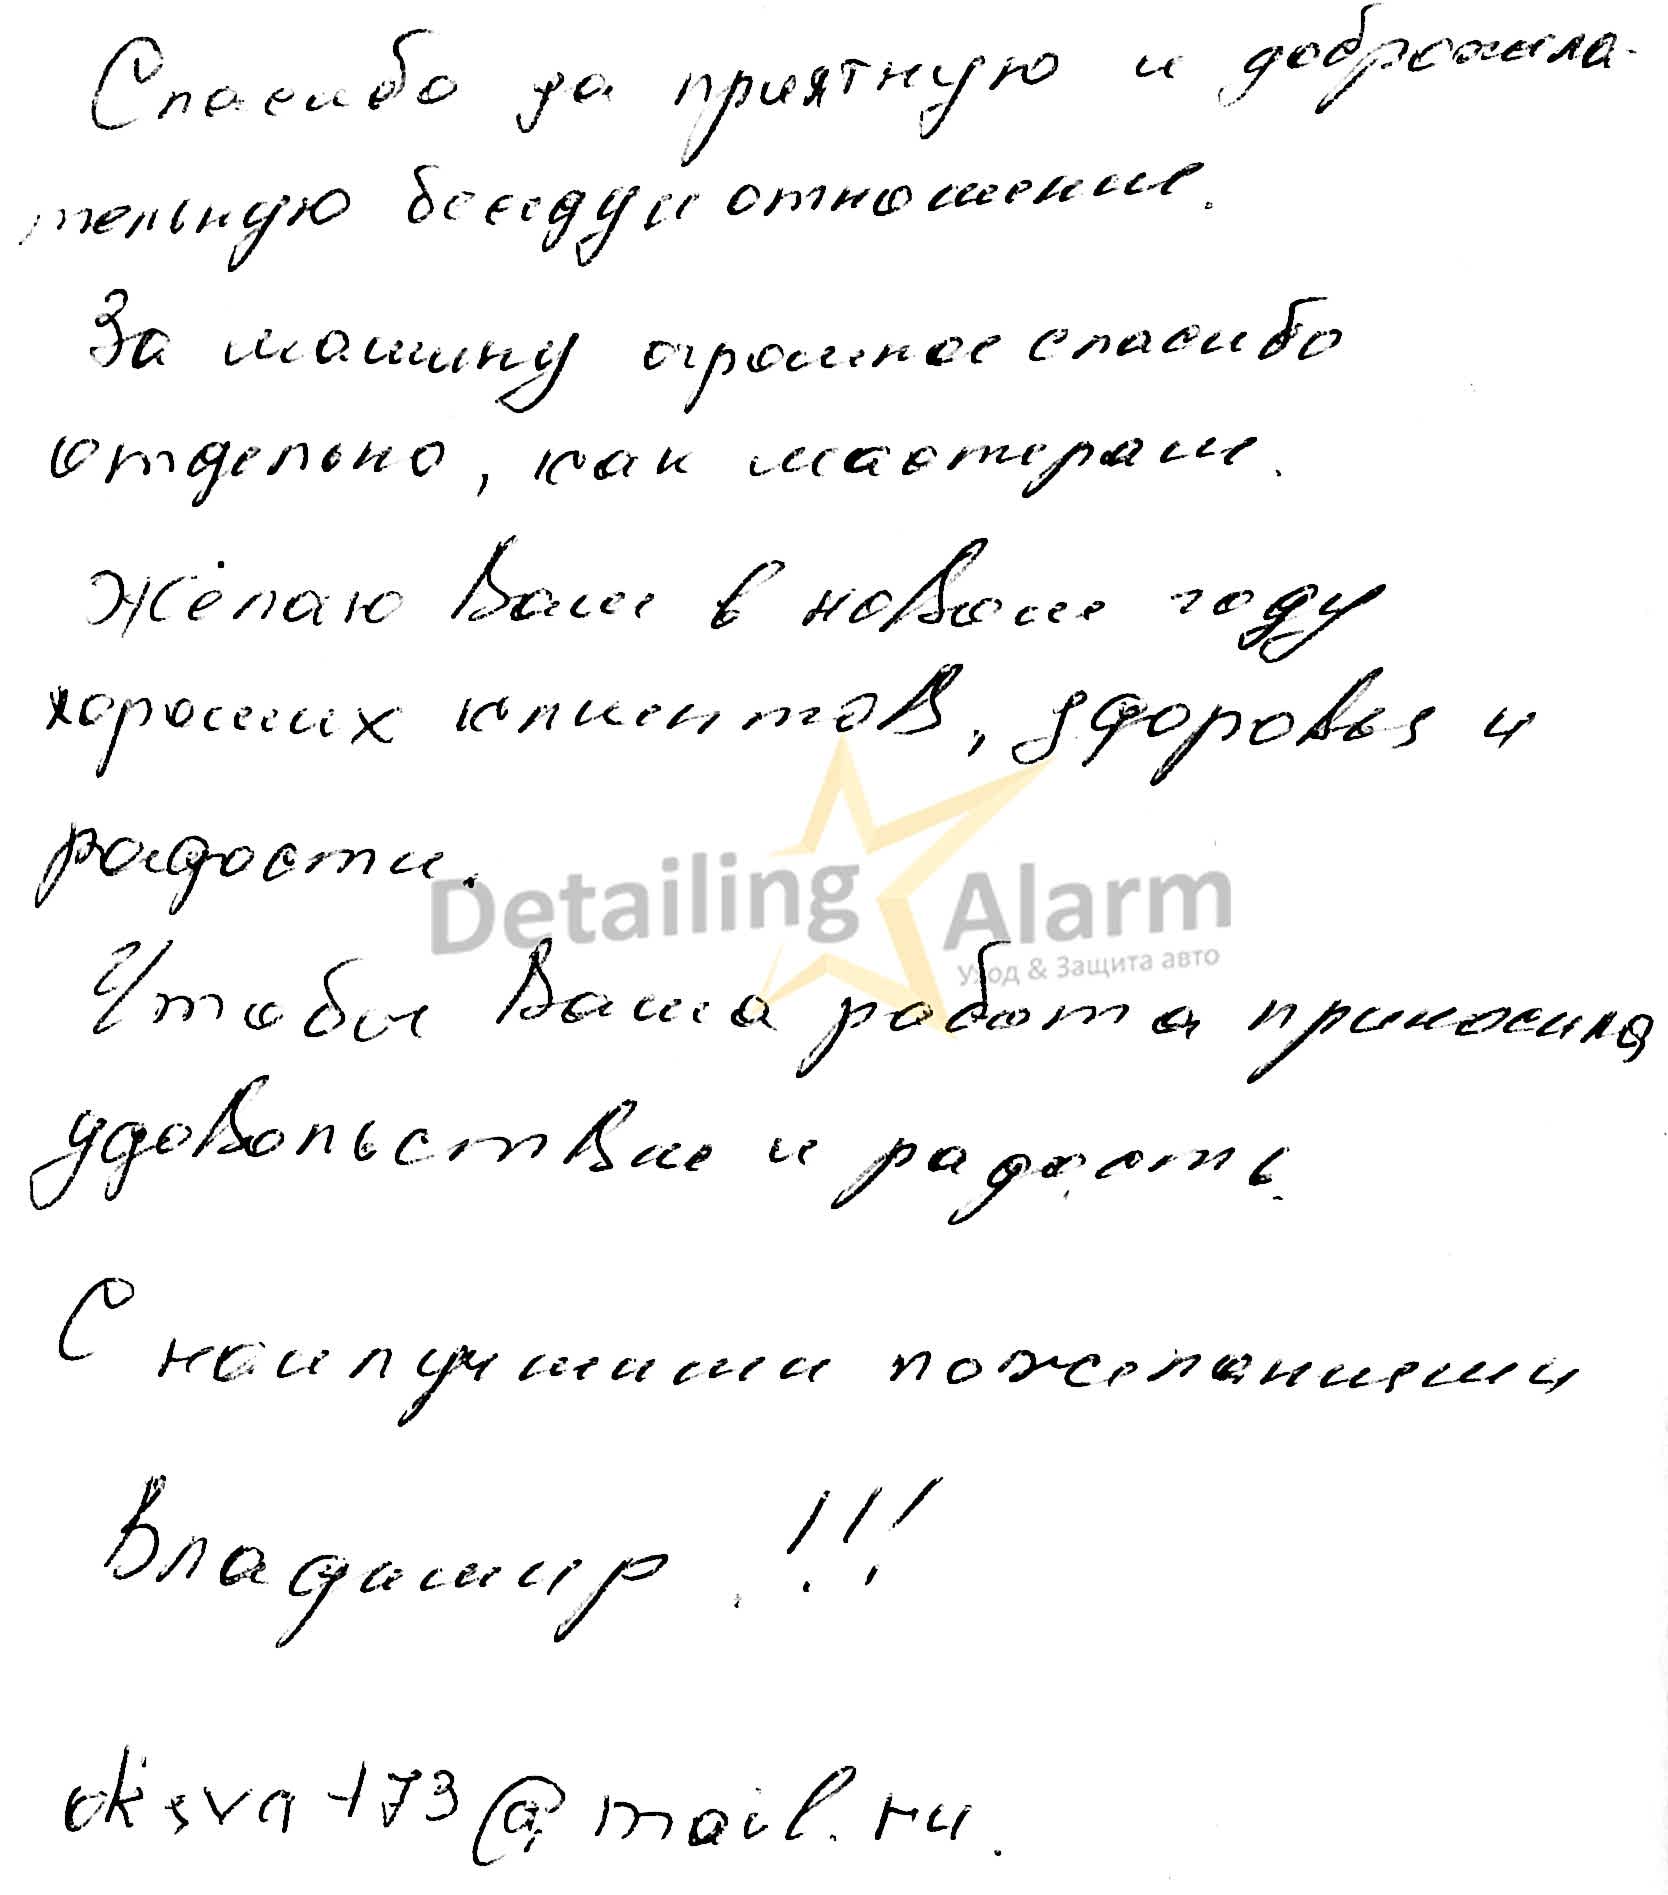 Спасибо за приятную и доброжела-
тельную беседу и отношение.
За машину огромное спасибо
отдельно, как мастерам.
Желаю Вам в новом году
хороших клиентов, здоровья и
радости.
Detailing Alarm
Уход & Защита авто
Чтобы Ваша работа приносила
удовольствие и радость.
С наилучшими пожеланиями
Владимир !!!
@mail.ru.